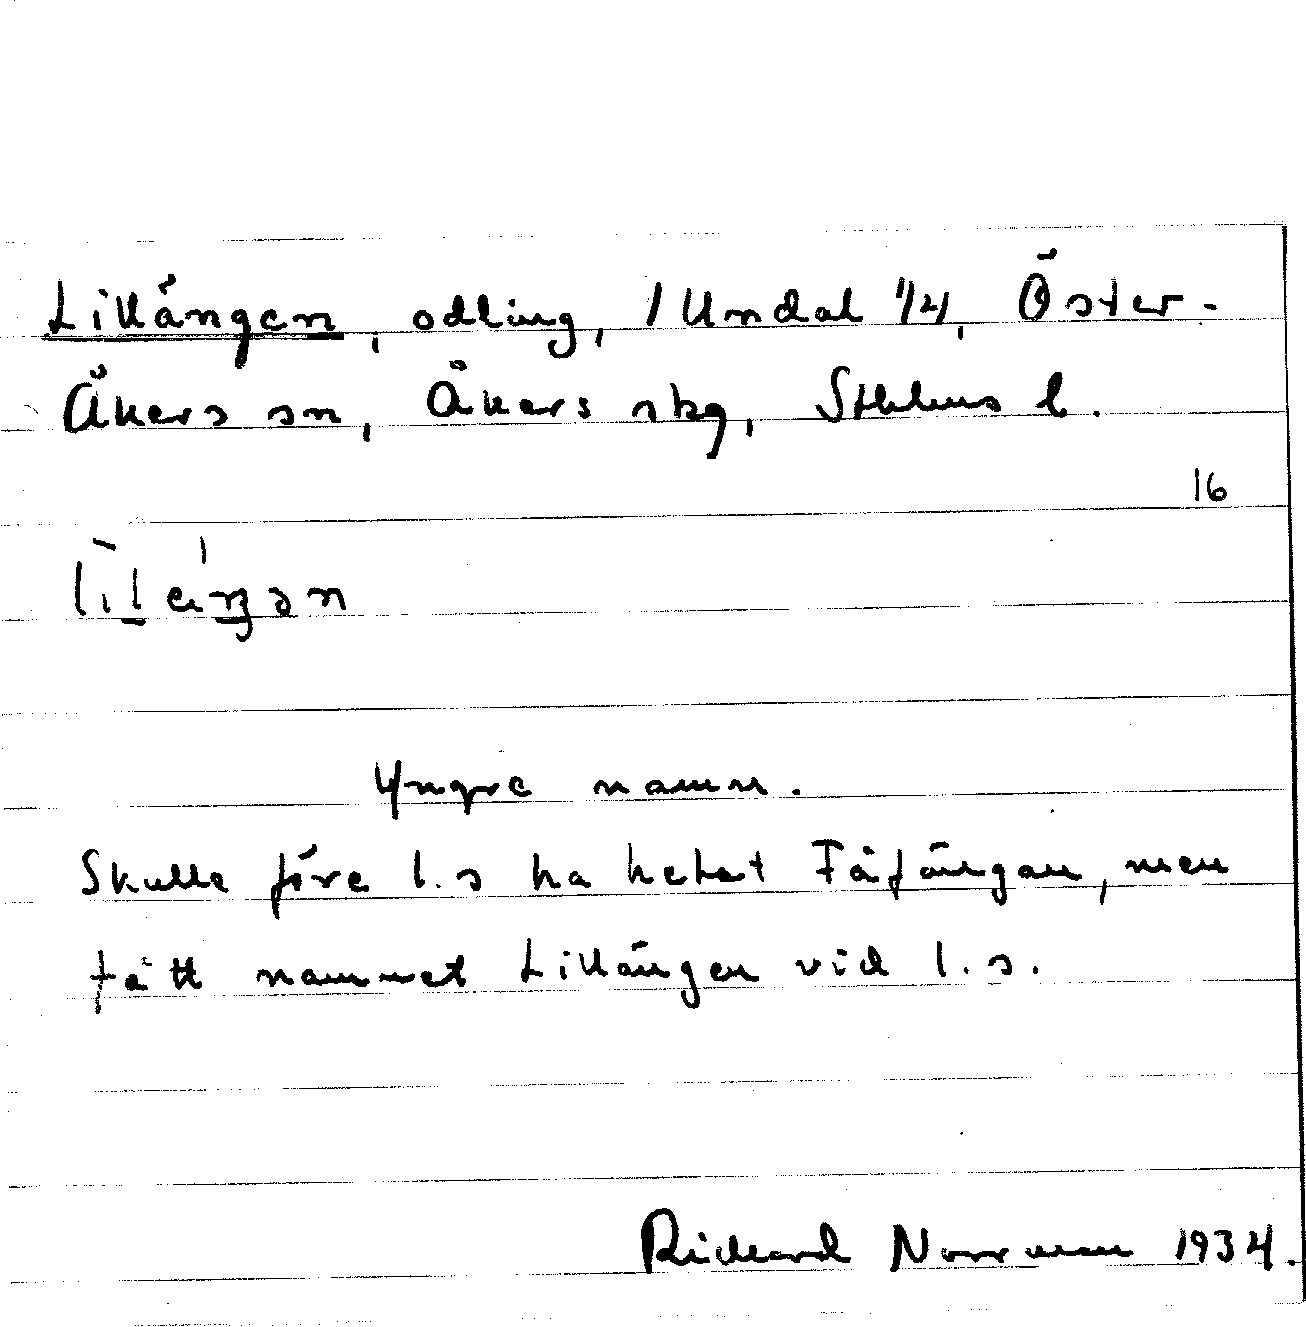 Lillängen, odling, 1 Undal 1/4, Öster-
Åkers sn, Åkers skg, Sthlms l.
16
Yngre namn.
Skulle före l.s ha hetat Fåfängan, men
fått namnet Lillängen vid l.s.
Richard Norrman 1934.